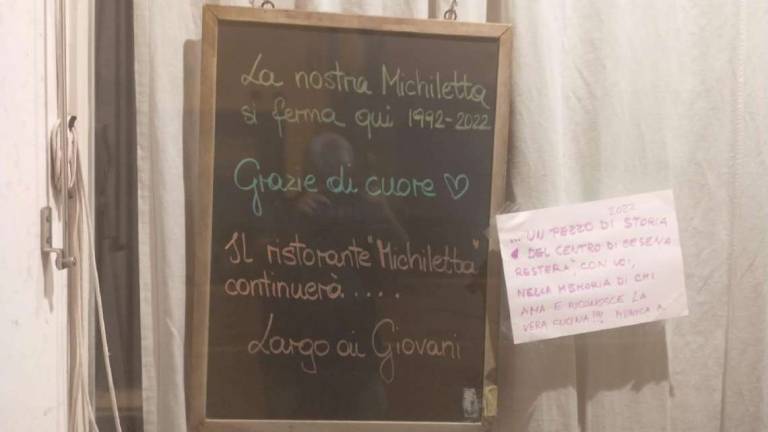 La nostra Michiletta
si ferma qui 1992-2022
Grazie di cuore
IL ristorante "Michiletta"
continuerà....
Largo ai Giovani
2022
... UN PEZZO DI STORIA
DEL CENTRO DI CESENA
RESTERÀ, CON VOI,
NELLA MEMORIA DI CHI
AMA E RICONOSCE LA
VERA CUCINA!!! MONICA A.